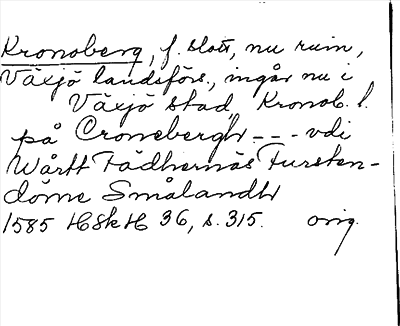 Kronoberg, f. slott, nu ruin,
Växjö landsförs., ingår nu i
Växjö stad, Kronob. l.
på Cronebergh --- vdi
Wårtt Fädhernäs Fursten-
döme Smålandh
1585 HSkH 36, s. 315. orig.